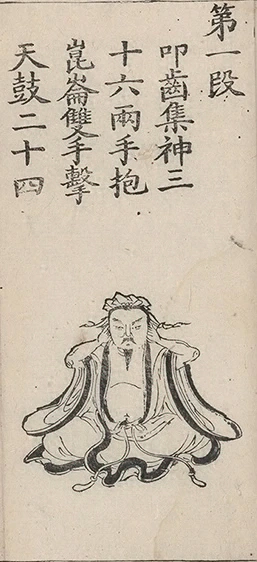 第一段
叩齒集神三
十六兩手抱
崑崙雙手擊
天鼓二十四